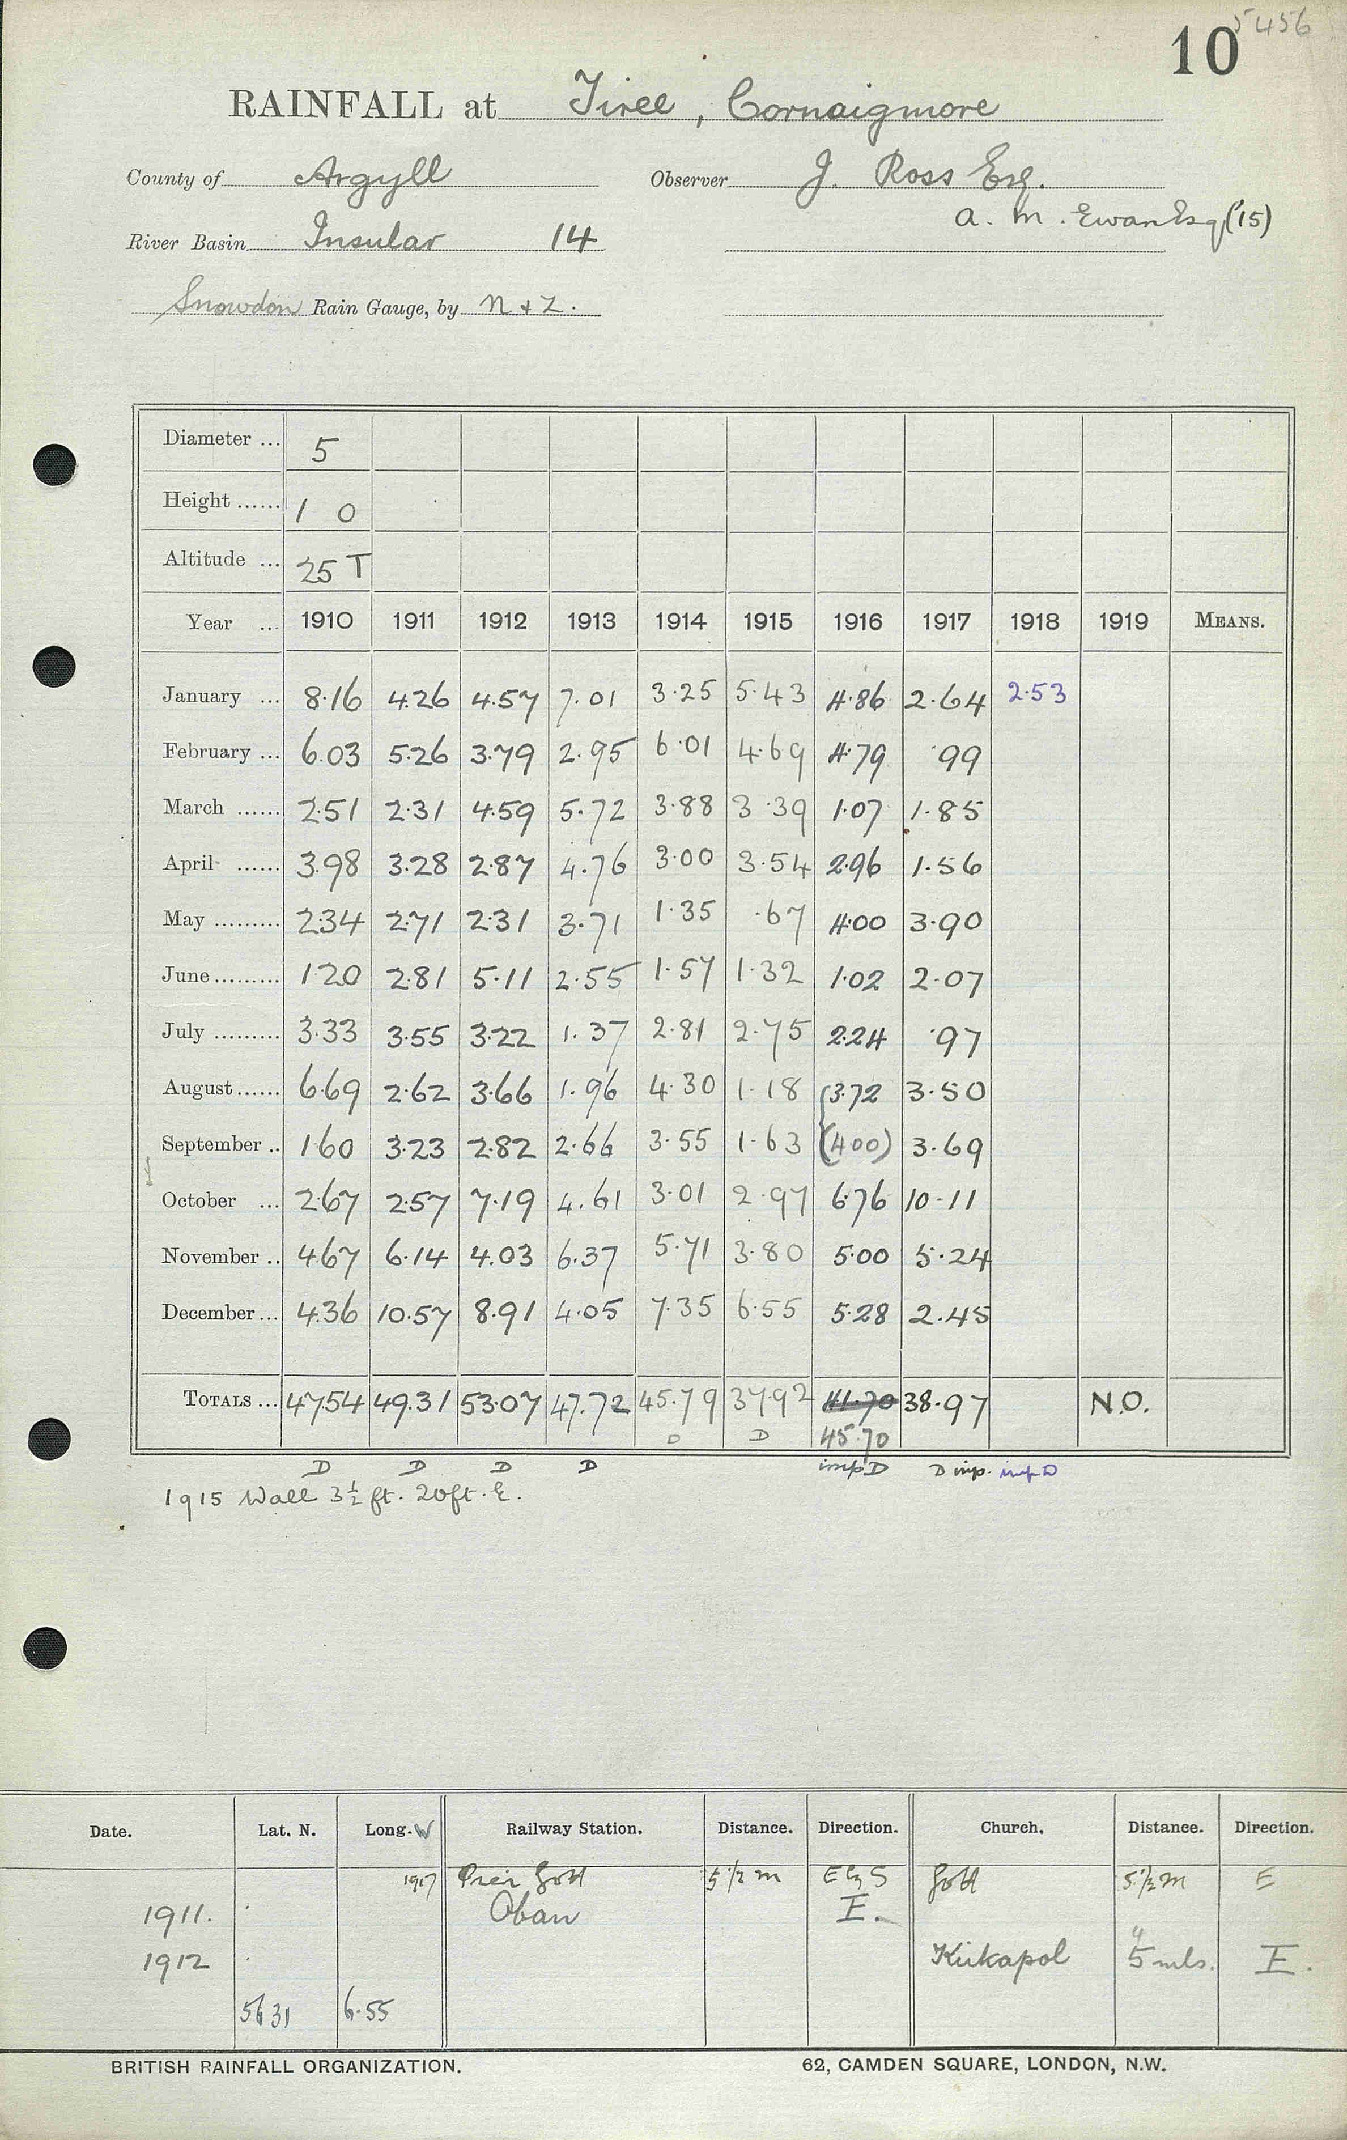 10 5456
RAINFALL at Tiree, Cornaigmore
County of Argyll Observer J. Ross Esq.
a. m. Ewan Esq ('15)
River Basin Insular 14
Snowdon Rain Gauge, by N & Z.
Diameter ... 5
Height ...... 1 0
Altitude ... 25 T
Year ... 1910 1911 1912 1913 1914 1915 1916 1917 1918 1919 MEANS.
January ... 8.16 4.26 4.57 7.01 3.25 5.43 4.86 2.64 2.53
February ... 6.03 5.26 3.79 2.95 6.01 4.69 4.79 .99
March ...... 2.51 2.31 4.59 5.72 3.88 3.39 1.07 1.85
April ...... 3.98 3.28 2.87 4.76 3.00 3.54 2.96 1.56
May ......... 2.34 2.71 2.31 3.71 1.35 .67 4.00 3.90
June ......... 1.20 2.81 5.11 2.55 1.57 1.32 1.02 2.07
July ......... 3.33 3.55 3.22 1.37 2.81 2.75 2.24 .97
August ...... 6.69 2.62 3.66 1.96 4.30 1.18 {3.72 3.50
September .. 1.60 3.23 2.82 2.66 3.55 1.63 (4.00) 3.69
October ... 2.67 2.57 7.19 4.61 3.01 2.97 6.76 10.11
November .. 4.67 6.14 4.03 6.37 5.71 3.80 5.00 5.24
December ... 4.36 10.57 8.91 4.05 7.35 6.55 5.28 2.45
TOTALS ... 47.54 49.31 53.07 47.72 45.79 37.92 41.70 38.97 N.O.
D D 45.70
D D D D imp D D imp. imp D
1915 Wall 3½ ft. 20ft. E.
Date. Lat. N. Long. W Railway Station. Distance. Direction. Church. Distance. Direction.
1917 Pier Gott 5 1/2 m E by S Gott 5 1/2 m E
1911. Oban E.
1912 Kirkapol 5 mls. E.
56 31 6.55
BRITISH RAINFALL ORGANIZATION. 62, CAMDEN SQUARE, LONDON, N.W.